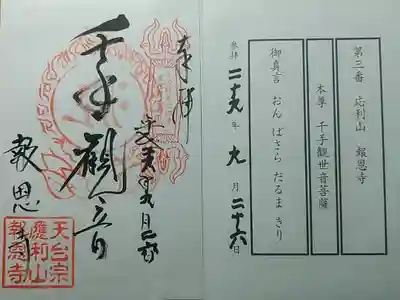 第三番 応利山 報恩寺
本尊 千手観世音菩薩
御真言 おん ばさら だるま きり
参拝 二十九年 九月 二十六日
奉拝
千手觀音
報恩寺
天台宗
應利山
報恩寺